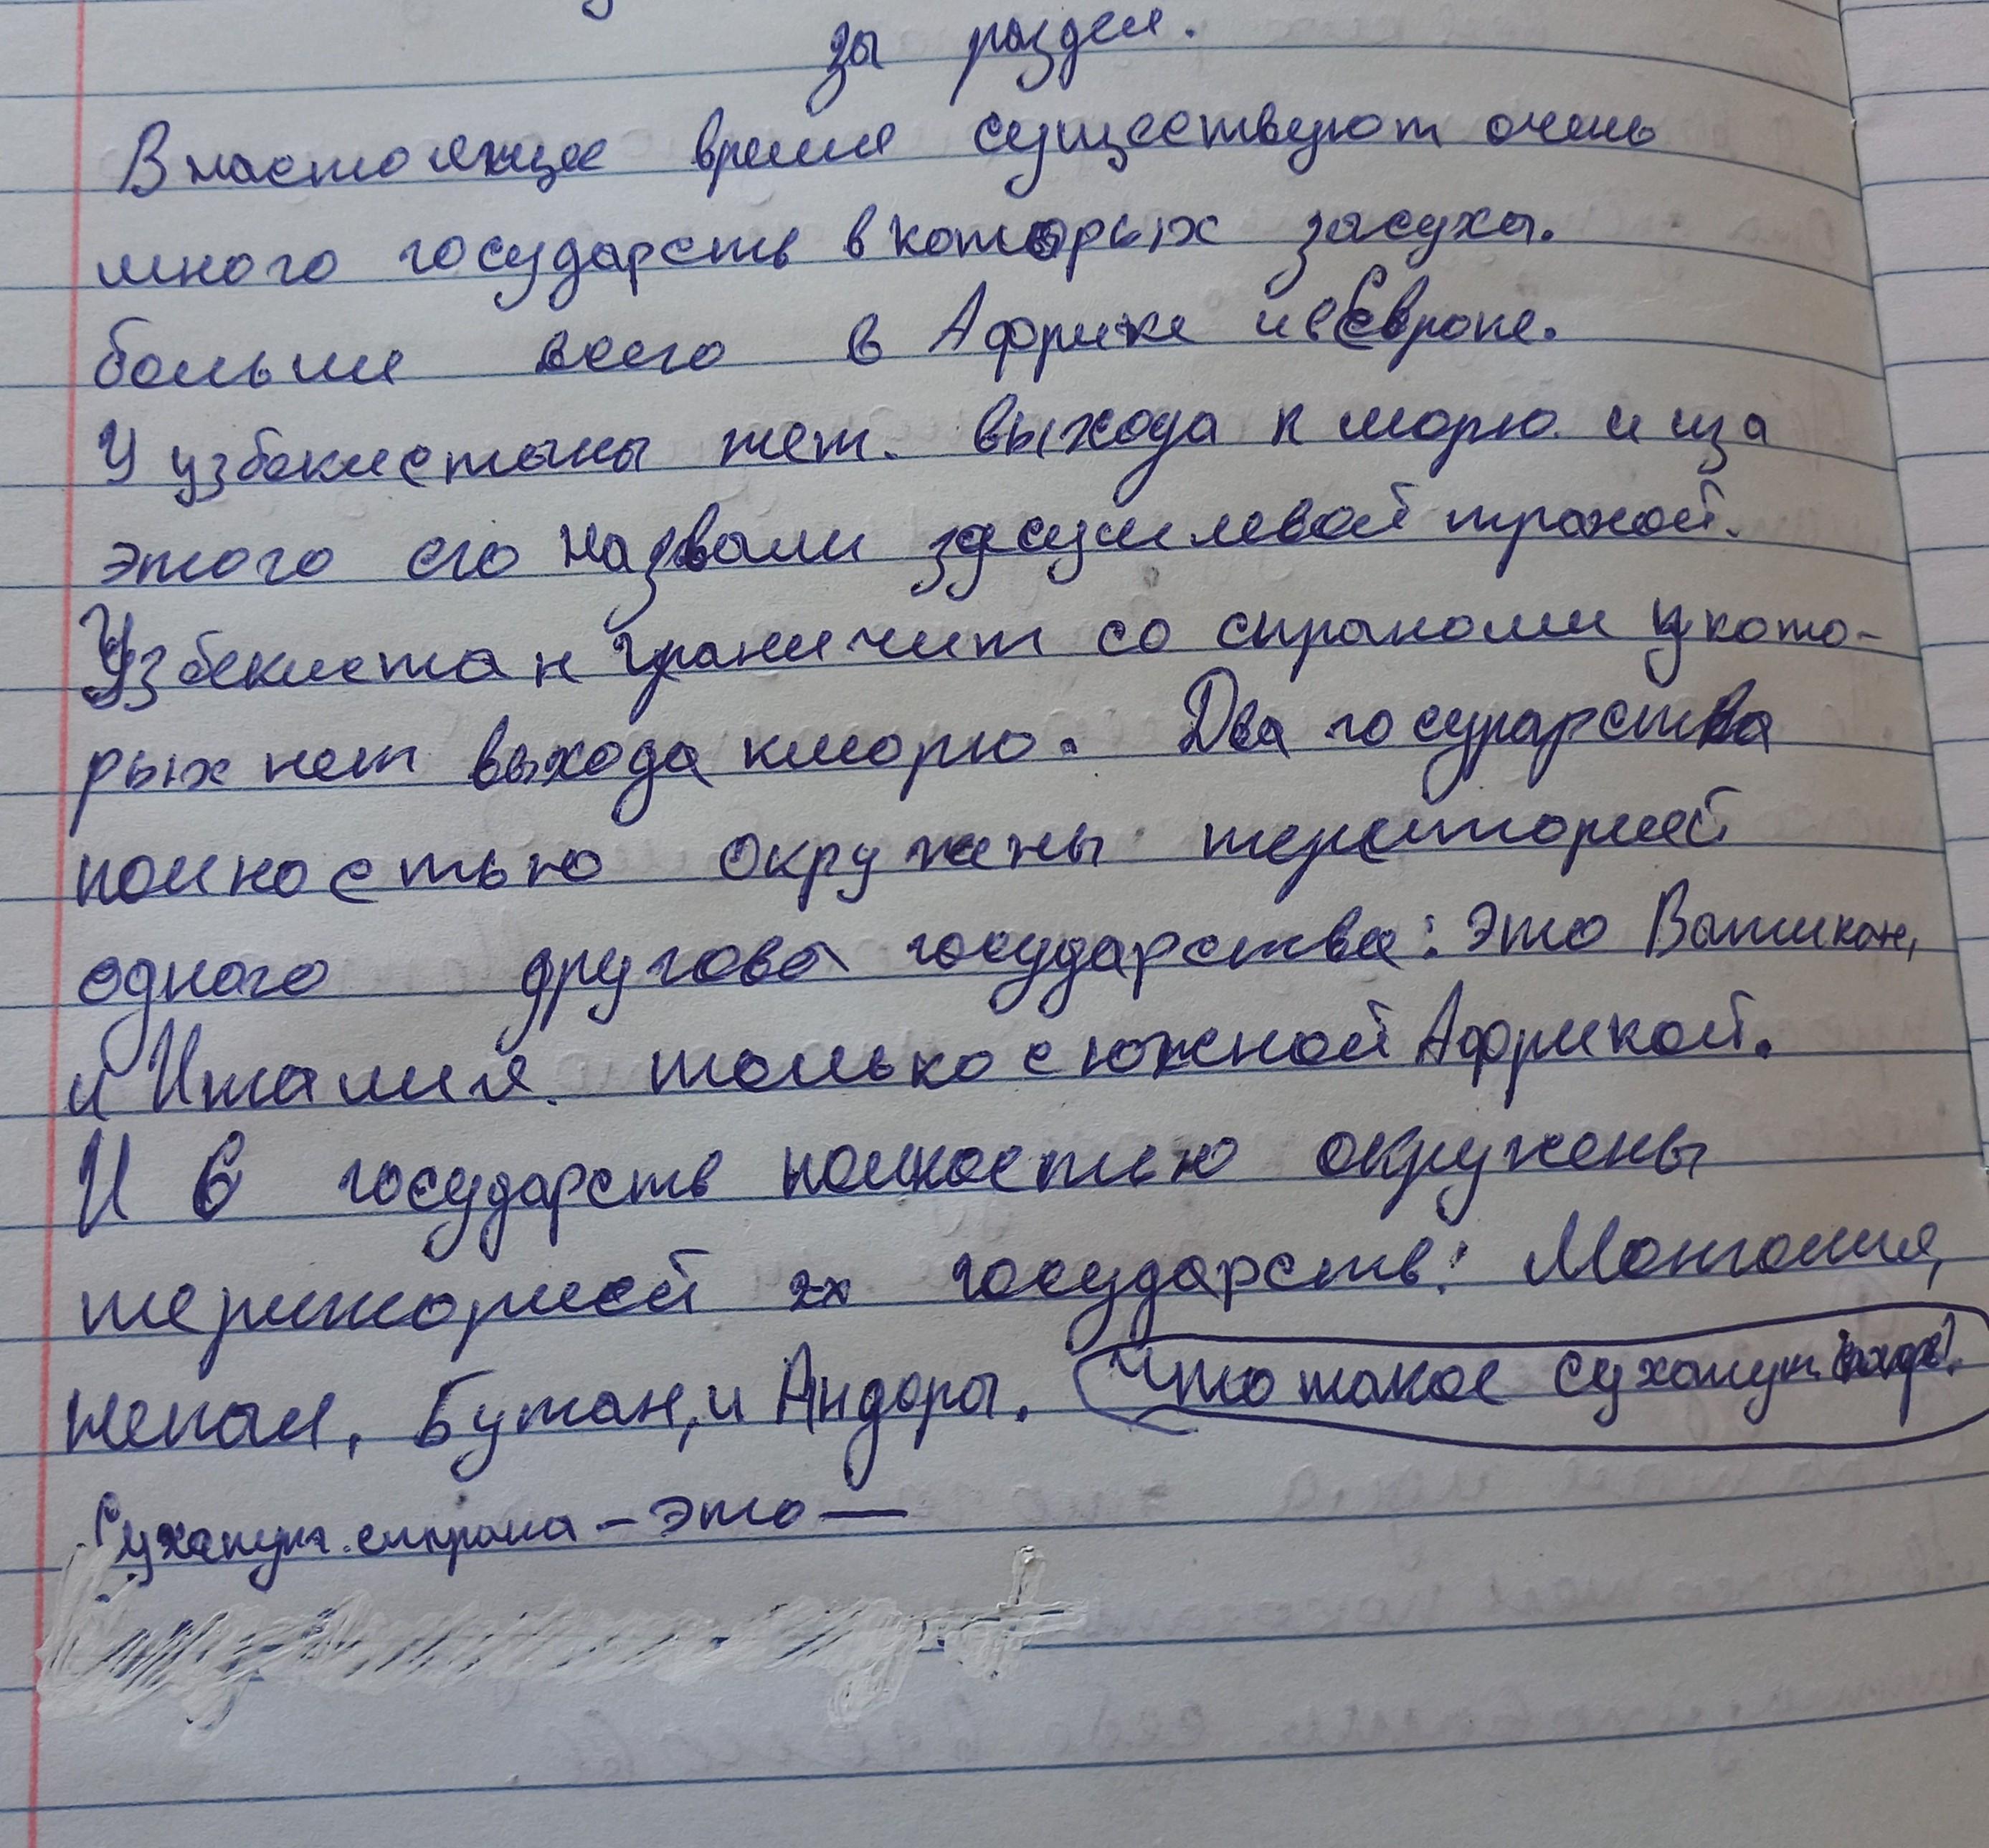 зы раздел.
В настоящее время существуют очень
много государств в которых засухы.
больше всего в Африке и в Европе.
У узбекистаны нет. выхода к морю. и иза
этого его назвали засушлевой траной.
Узбекистан граничит со странами у кото-
рых нет выхода к морю. Два госурарства
полностью окружены тереторией
одного другова государства: это Ватикан,
и Италия. только с южной Африкой.
И 6 государств полностью окружены
територией 2х государств: Монголия,
непал, Бутан, и Андоры. Что такое сухапут.
Сухапут. страна – это —